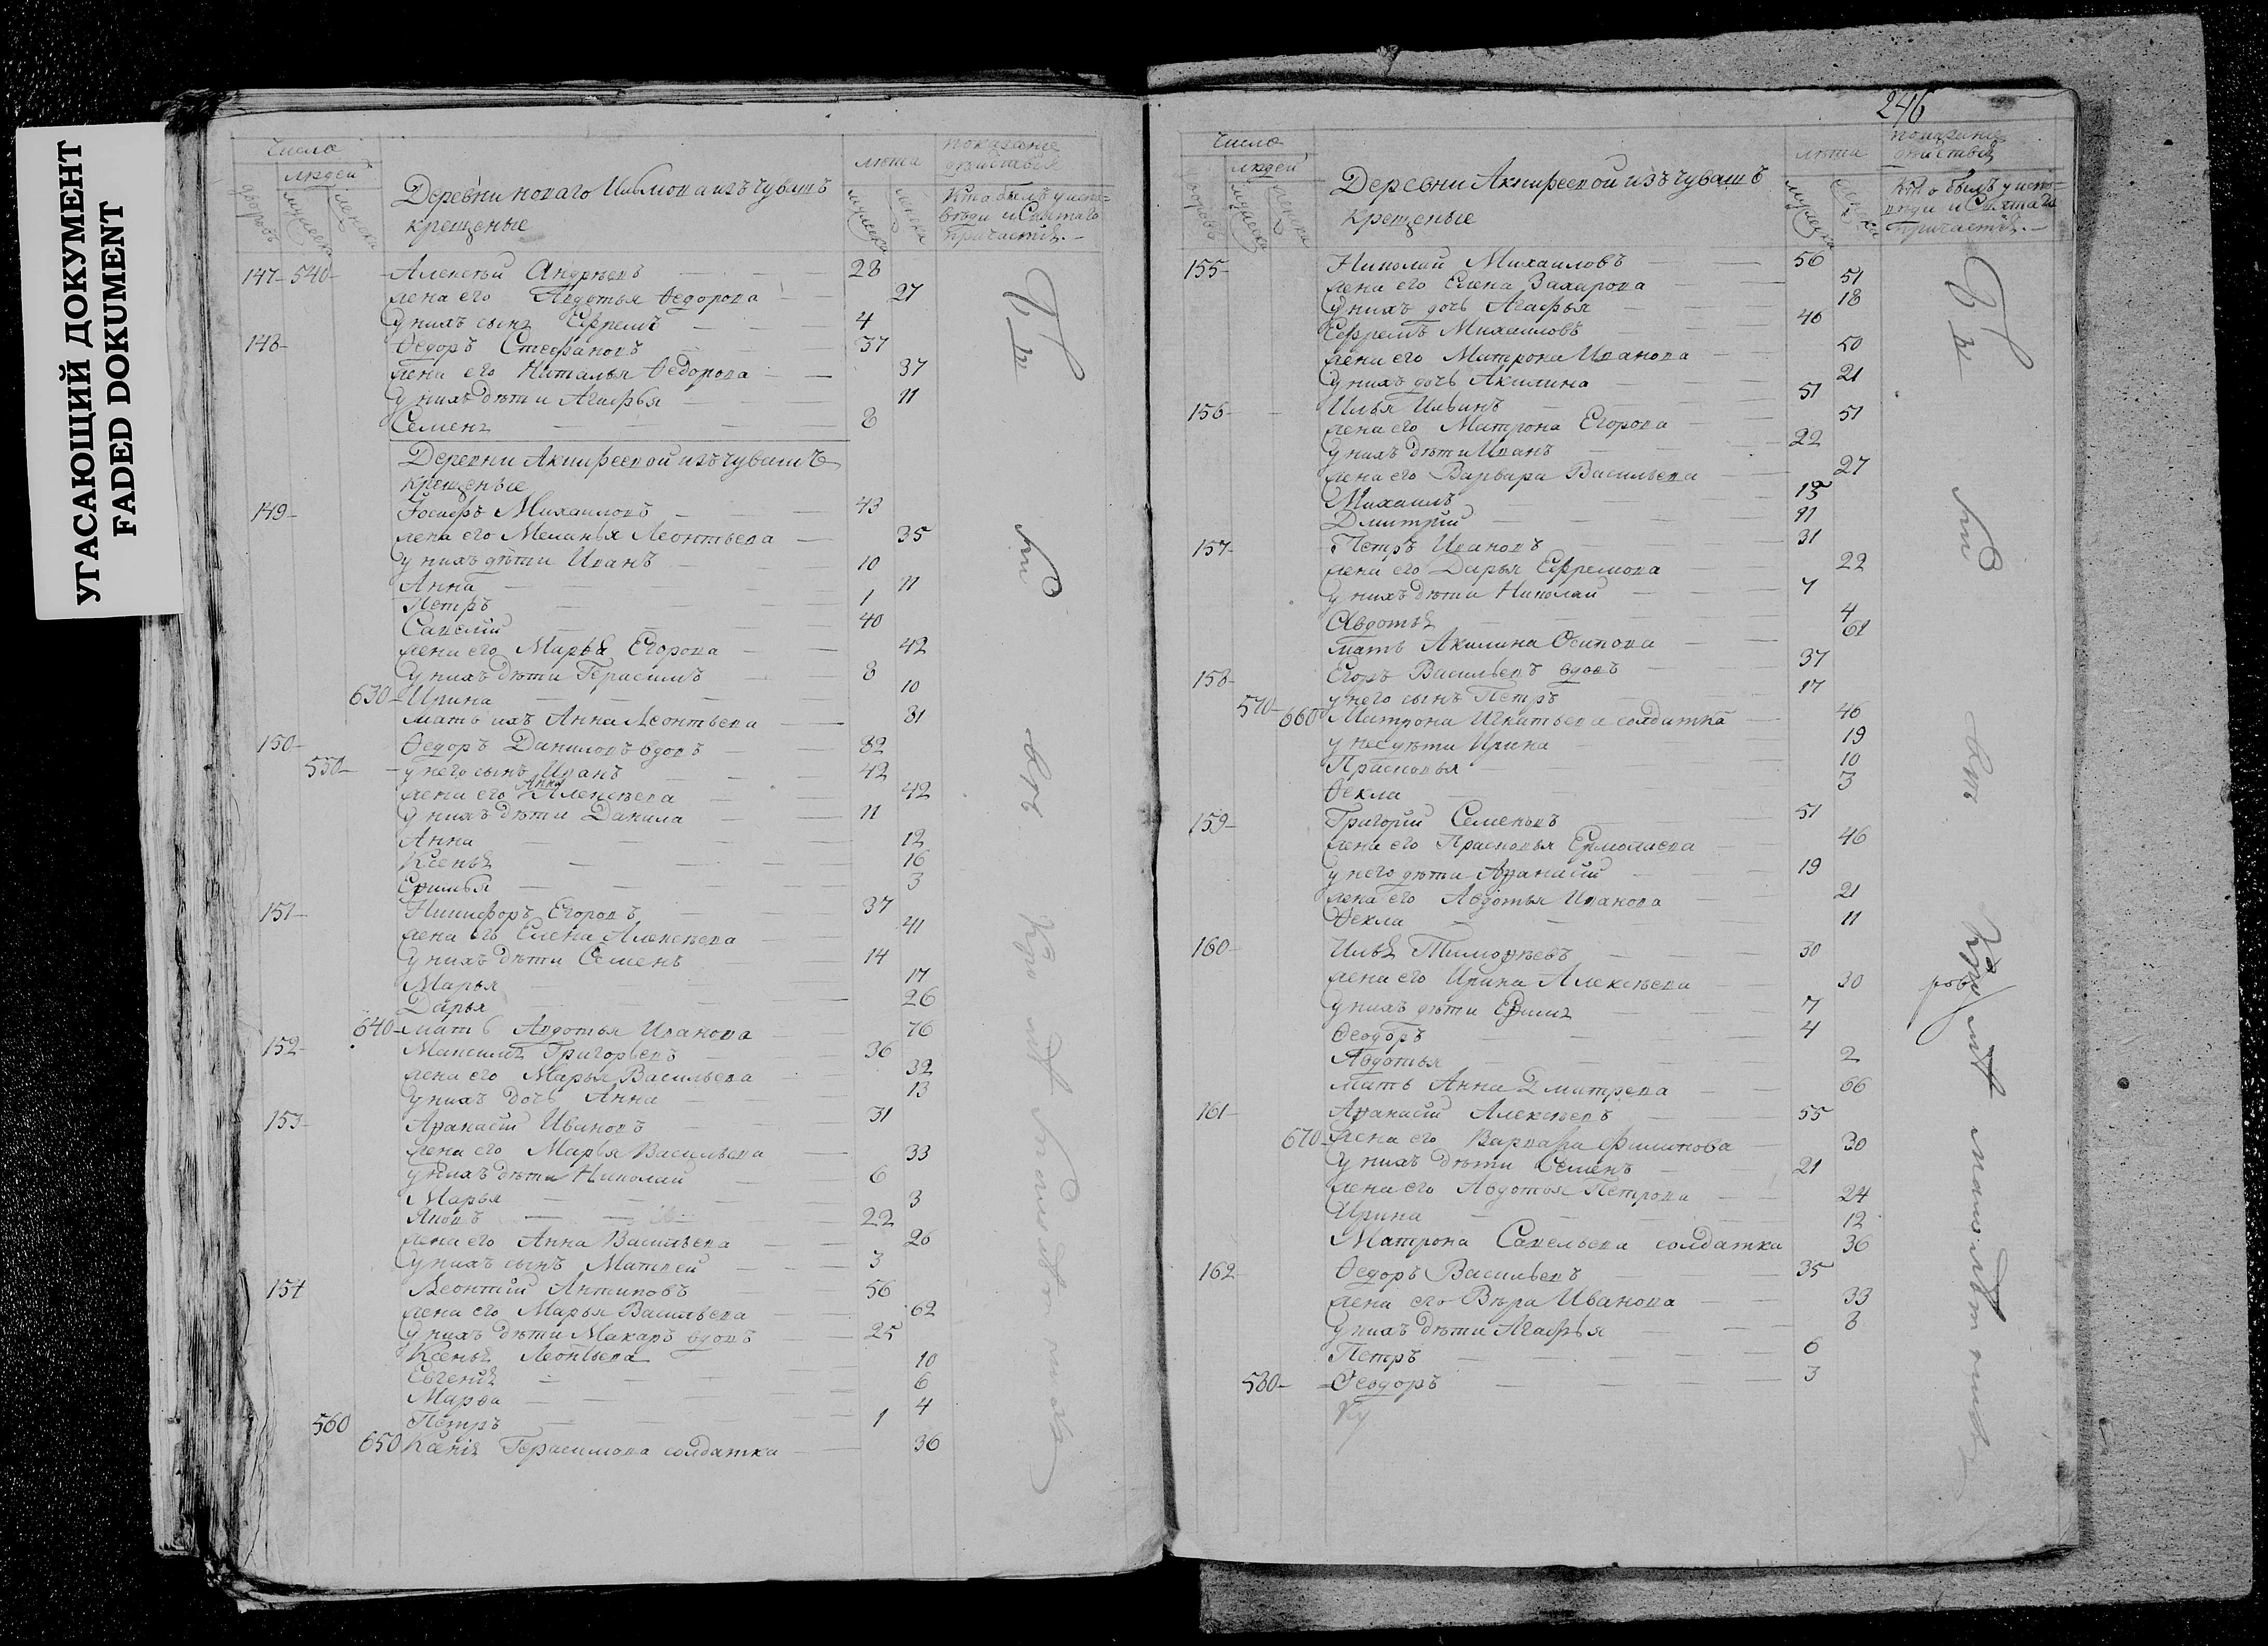 УГАСАЮЩИЙ ДОКУМЕНТ
FADED DOKUMENT
Число
людей
дворовъ
мужеска
женска
Деревни новаго Ильмова изъ чувашъ
крещеные
лѣта
мужеска
женска
показание
дѣйствия
Кто былъ у испо-
вѣди и Святаго
причастия. –
147 – 540 – Алексѣй Андрѣевъ 28
жена его Авдотья Ѳедорова 27
У нихъ сынъ Ефремъ 4
148 – Ѳедоръ Стефановъ 37
жена его Наталья Ѳедорова 37
У нихъ дѣти Агафья 11
Семенъ 8
Деревни Акпифеевой изъ чувашъ
крещеные
149 – Иосифъ Михаиловъ 43
жена его Меланья Леонтьева 35
у нихъ дѣти Иванъ 10
Анна 11
Петръ 1
Савелий 40
жена его Марья Егорова 42
У нихъ дѣти Герасимъ 8
630 – Ирина 10
мать ихъ Анна Леонтьева 81
150 – Ѳедоръ Даниловъ вдовъ 82
550 – у него сынъ Иванъ 42
жена его Анна Алексѣева 42
У нихъ дѣти Данила 11
Анна 12
Ксенья 16
Еѳимья 3
151 – Никифоръ Егоровъ 37
жена его Елена Алексѣева 41
У нихъ дѣти Семенъ 14
Марья 17
Дарья 26
640 – мать Авдотья Иванова 76
152 – Максимъ Григорьевъ 36
жена его Марья Васильева 32
У нихъ дочь Анна 13
153 – Аѳанасий Ивановъ 31
жена его Марья Васильева 33
У нихъ дѣти Николай 6
Марья 3
Яковъ 22
жена его Анна Васильева 26
У нихъ сынъ Матвей 3
154 Леонтий Антиповъ 56
жена его Марья Васильева 62
У нихъ дѣти Макаръ вдовъ 25
Ксенья Леонтьева 10
Евгения 6
Марѳа 4
560 Петръ 1
650 Ксения Герасимова солдатка 36
246
Число
людей
дворовъ
мужеска
женска
Деревни Акпифеевой изъ чувашъ
крещеные
лѣта
мужеска
женска
показание
дѣйствия
Кто былъ у испо-
вѣди и Святаго
причастия. –
155 – Николай Михаиловъ 56
жена его Елена Захарова 51
У нихъ дочь Агафья 18
Ефремъ Михаиловъ 46
жена его Матрона Иванова 50
У нихъ дочь Акилина 21
156 – Илья Ильинъ 51
жена его Матрона Егорова 51
У нихъ дѣти Иванъ 22
жена его Варвара Васильева 27
Михаилъ 15
Дмитрий 11
157 – Петръ Ивановъ 31
жена его Дарья Ефремова 22
у нихъ дѣти Николай 7
Авдотья 4
мать Акилина Осипова 61
158 – Егоръ Васильевъ вдовъ 37
у него сынъ Петръ 17
570 – 660 Матрона Игнатьева солдатка 46
у нее дѣти Ирина 19
Прасковья 10
Ѳекла 3
159 – Григорий Семеновъ 51
жена его Прасковья Ермолаева 46
у него дѣти Аѳанасий 19
жена его Авдотья Иванова 21
Ѳекла 11
160 – Илья Тимоѳѣевъ 30
жена его Ирина Алексѣева 30
У нихъ дѣти Еѳимъ 7
Ѳеодоръ 4
Авдотья 2
мать Анна Дмитрева 66
161 – Аѳанасий Алексѣевъ 55
670 – жена его Варвара Филипова 30
У нихъ дѣти Семенъ 21
жена его Авдотья Петрова 24
Ирина 12
Матрона Савельева солдатка 36
162 – Ѳедоръ Васильевъ 35
жена его Вѣра Иванова 33
У нихъ дѣти Агафья 8
Петръ 6
580 – Ѳеодоръ 3